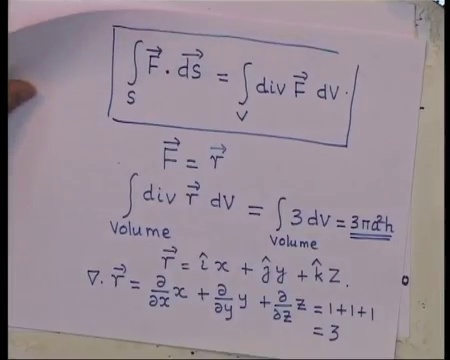 ∫_S F⃗ · ds⃗ = ∫_V div F⃗ dV.
F⃗ = r⃗
∫_Volume div r⃗ dV = ∫_Volume 3 dV = 3πa²h
r⃗ = îx + ĵy + k̂z.
∇·r⃗ = ∂/∂x x + ∂/∂y y + ∂/∂z z = 1+1+1
= 3